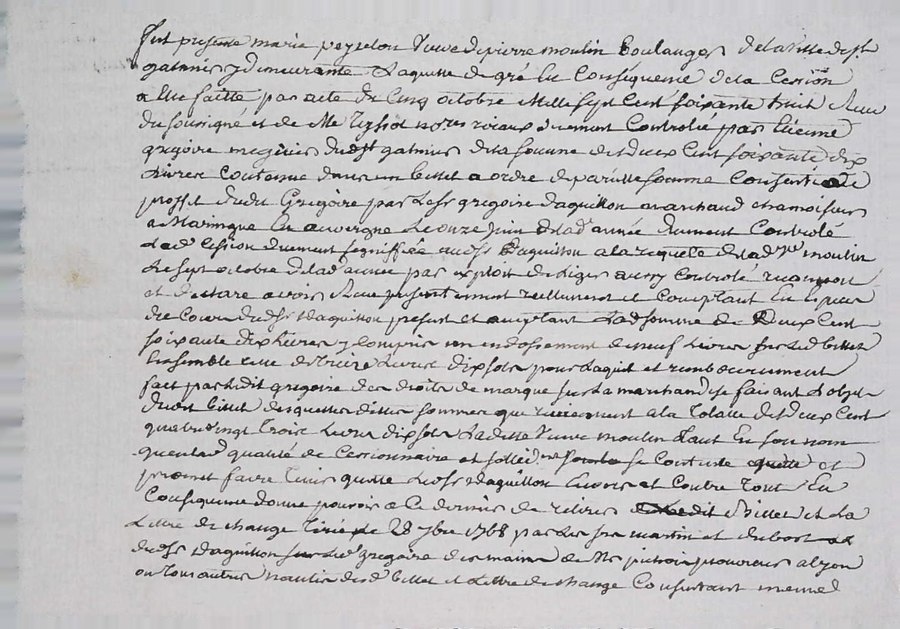 fut presente marie peyselon veuve de pierre moulin Boulanger de la ville de st
galmier y demeurante Laquelle de gré En Consequence de la Cession
a Elle faitte par acte du Cinq octobre Mille Sept Cent soixante huit Reçu
du sousigné et de Me notres roiaux duement Controllé par Etienne
gregoire megissier dudt st galmier de la somme de deux Cent soixante dix
Livres Contenue dans un billet a ordre de pareille somme Consenti au
proffit dudt Gregoire par Le sr gregoire daquillon marchand chamoiseur
a Maringue En auvergne Le onze juin de lade année duement Controlé
Lade Cession duement signiffiée audt sr daquillon a la requete de lade ve moulin
Le sept octobre de lade année par exploit de aussy Controlé reconnoit
et declare avoir Reçu presentement reellement et Comptant En Especes
de Cours dudt sr daquillon present et acceptant Lade somme de Deux Cent
soixante dix Livres y compris un endossement de neuf Livres sur Led billet
Ensemble celle de treize Livres dix sols pour Laquit et remboursement
fait par Ledit gregoire des droits de marque sur La marchandise faisant Lobjet
dudit billet desquelles dittes sommes qui reviennent a la Totalle de deux Cent
quatre vingt Trois Livres dix sols Laditte veuve moulin tant En son nom
quen lade qualité de Cessionnaire se Contente quitte et
promet faire Tenir quitte Ledt sr daquillon Envers et Contre Tout En
Consequence donne pouvoir a Ce dernier de retirer Ledit Billet et La
Lettre de change Tirée Le 28 7bre 1768 par Les srs martin et dubost
dudt sr daquillon sur Led gregoire des mains de Me procureur a Lyon
ou Tous autres nantis desd billet et Lettre de change Consentant meme